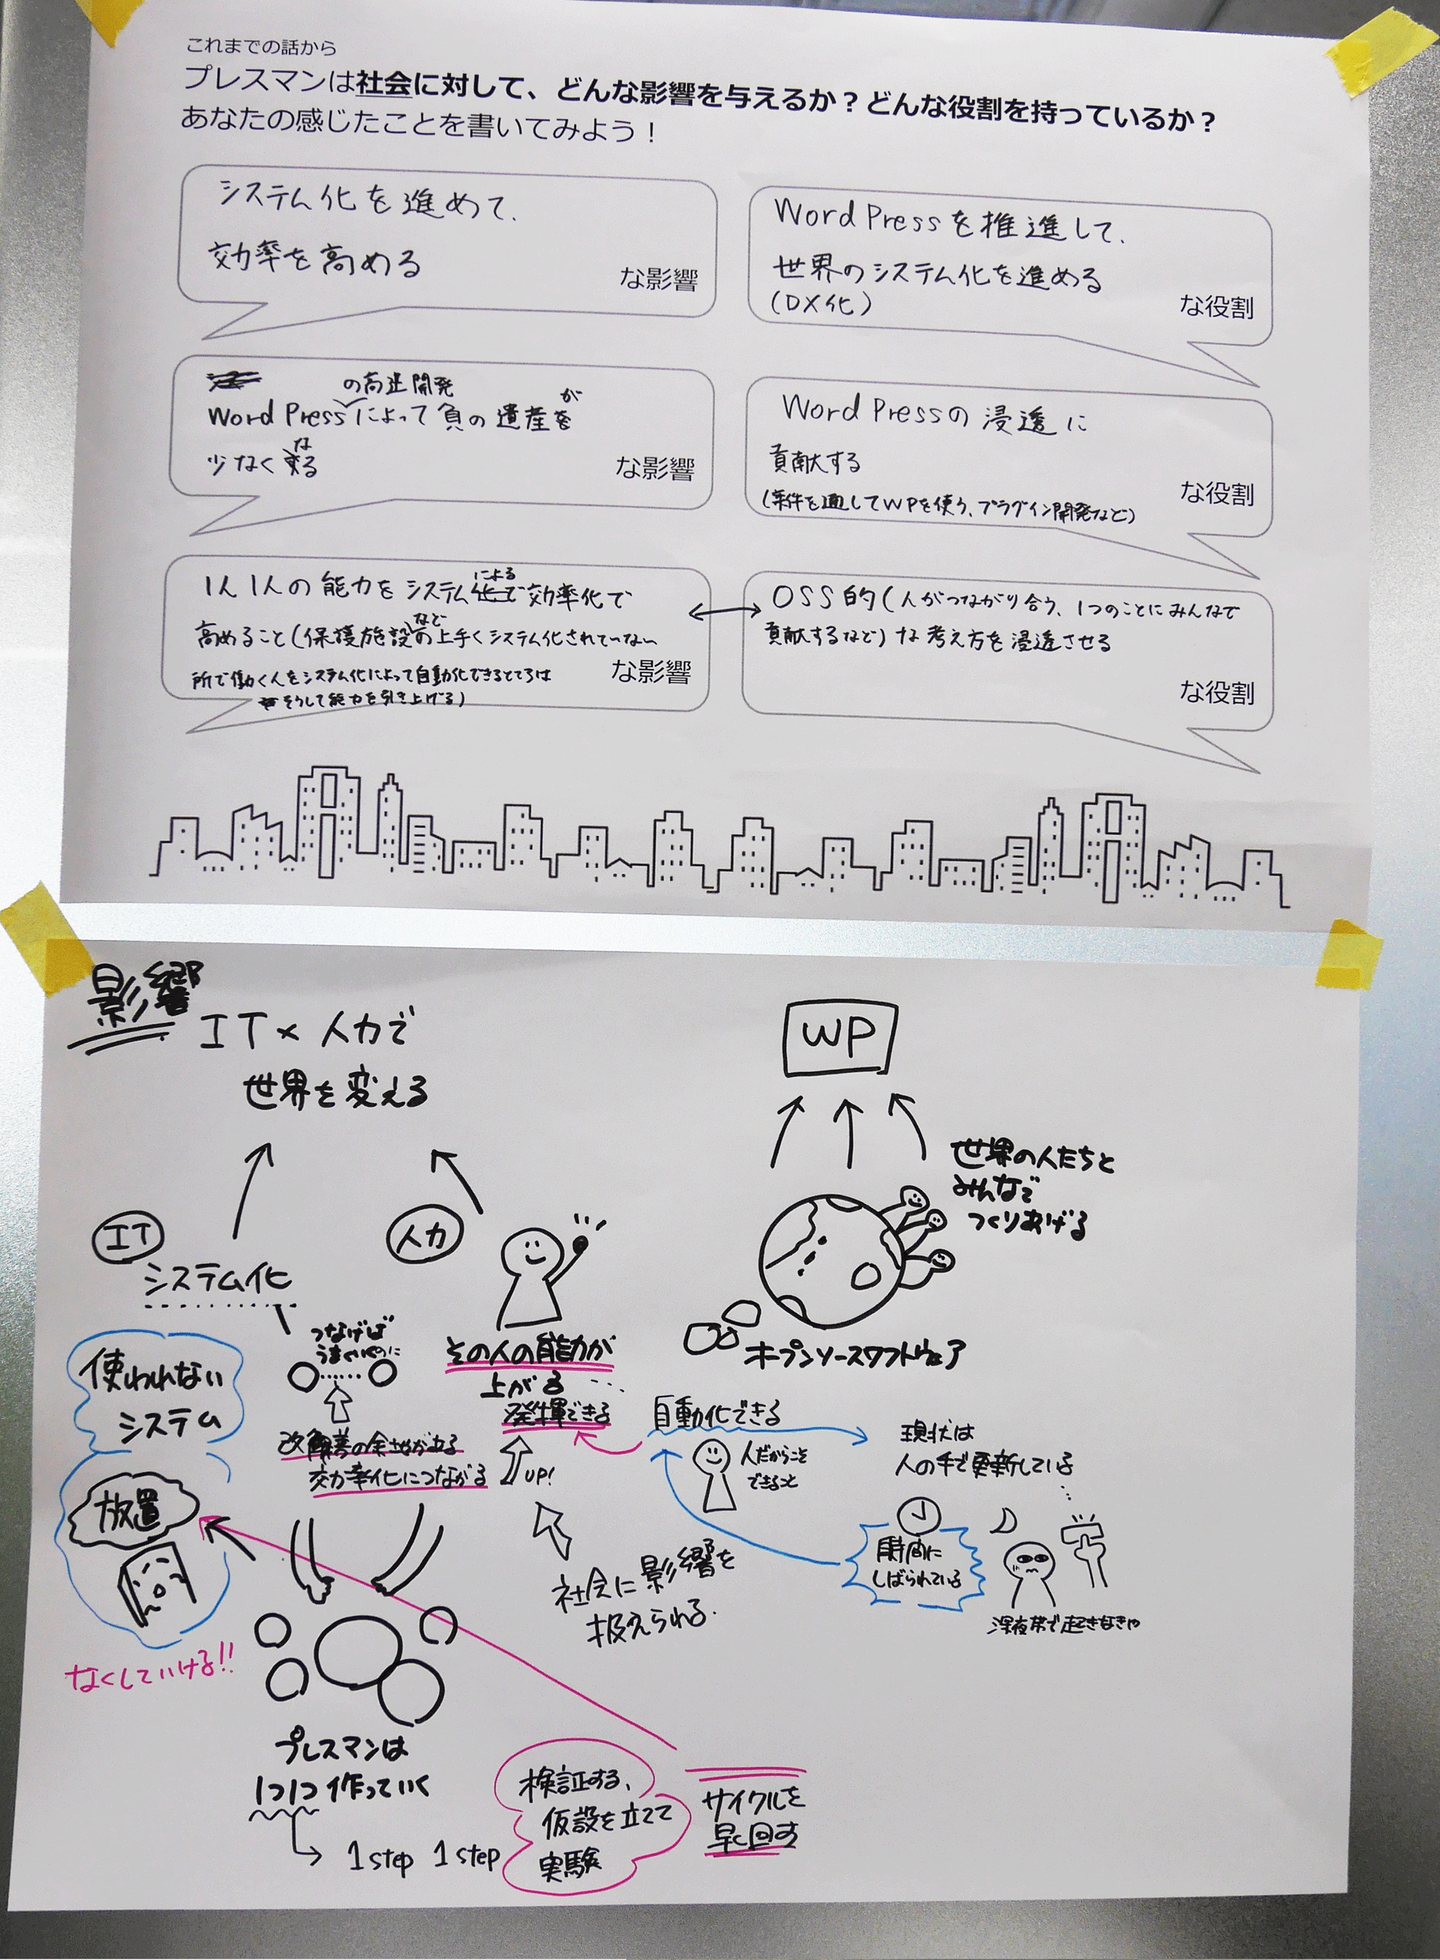 これまでの話から
プレスマンは社会に対して、どんな影響を与えるか？どんな役割を持っているか？
あなたの感じたことを書いてみよう！
システム化を進めて、
効率を高める
な影響
WordPressを推進して、
世界のシステム化を進める
(DX化)
な役割
の高速開発
が
WordPressによって負の遺産を
な
少なくする
な影響
WordPressの浸透に
貢献する
(案件を通してWPを使う、プラグイン開発など)
な役割
による
1人1人の能力をシステム化で効率化で
など
高めること(保護施設の上手くシステム化されていない
所で働く人をシステム化によって自動化できるところは
そうして能力を引き上げる)
な影響
OSS的(人がつながり合う、1つのことにみんなで
貢献するなど)な考え方を浸透させる
な役割
影響
IT×人力で
世界を変える
IT
システム化
人力
つなげば
その人の能力が
上がる
発揮できる
UP!
改善の余地がある
効率化につながる
使われない
システム
放置
なくしていける!!
プレスマンは
1つ1つ作っていく
1step 1step
検証する、
仮設を立てて
実験
サイクルを
早く回す
社会に影響を
扱えられる.
WP
世界の人たちと
みんなで
つくりあげる
オープンソースソフトウェア
自動化できる
人だからこそ
できること
現状は
人の手で更新している
時間に
しばられている
深夜帯で起きなきゃ